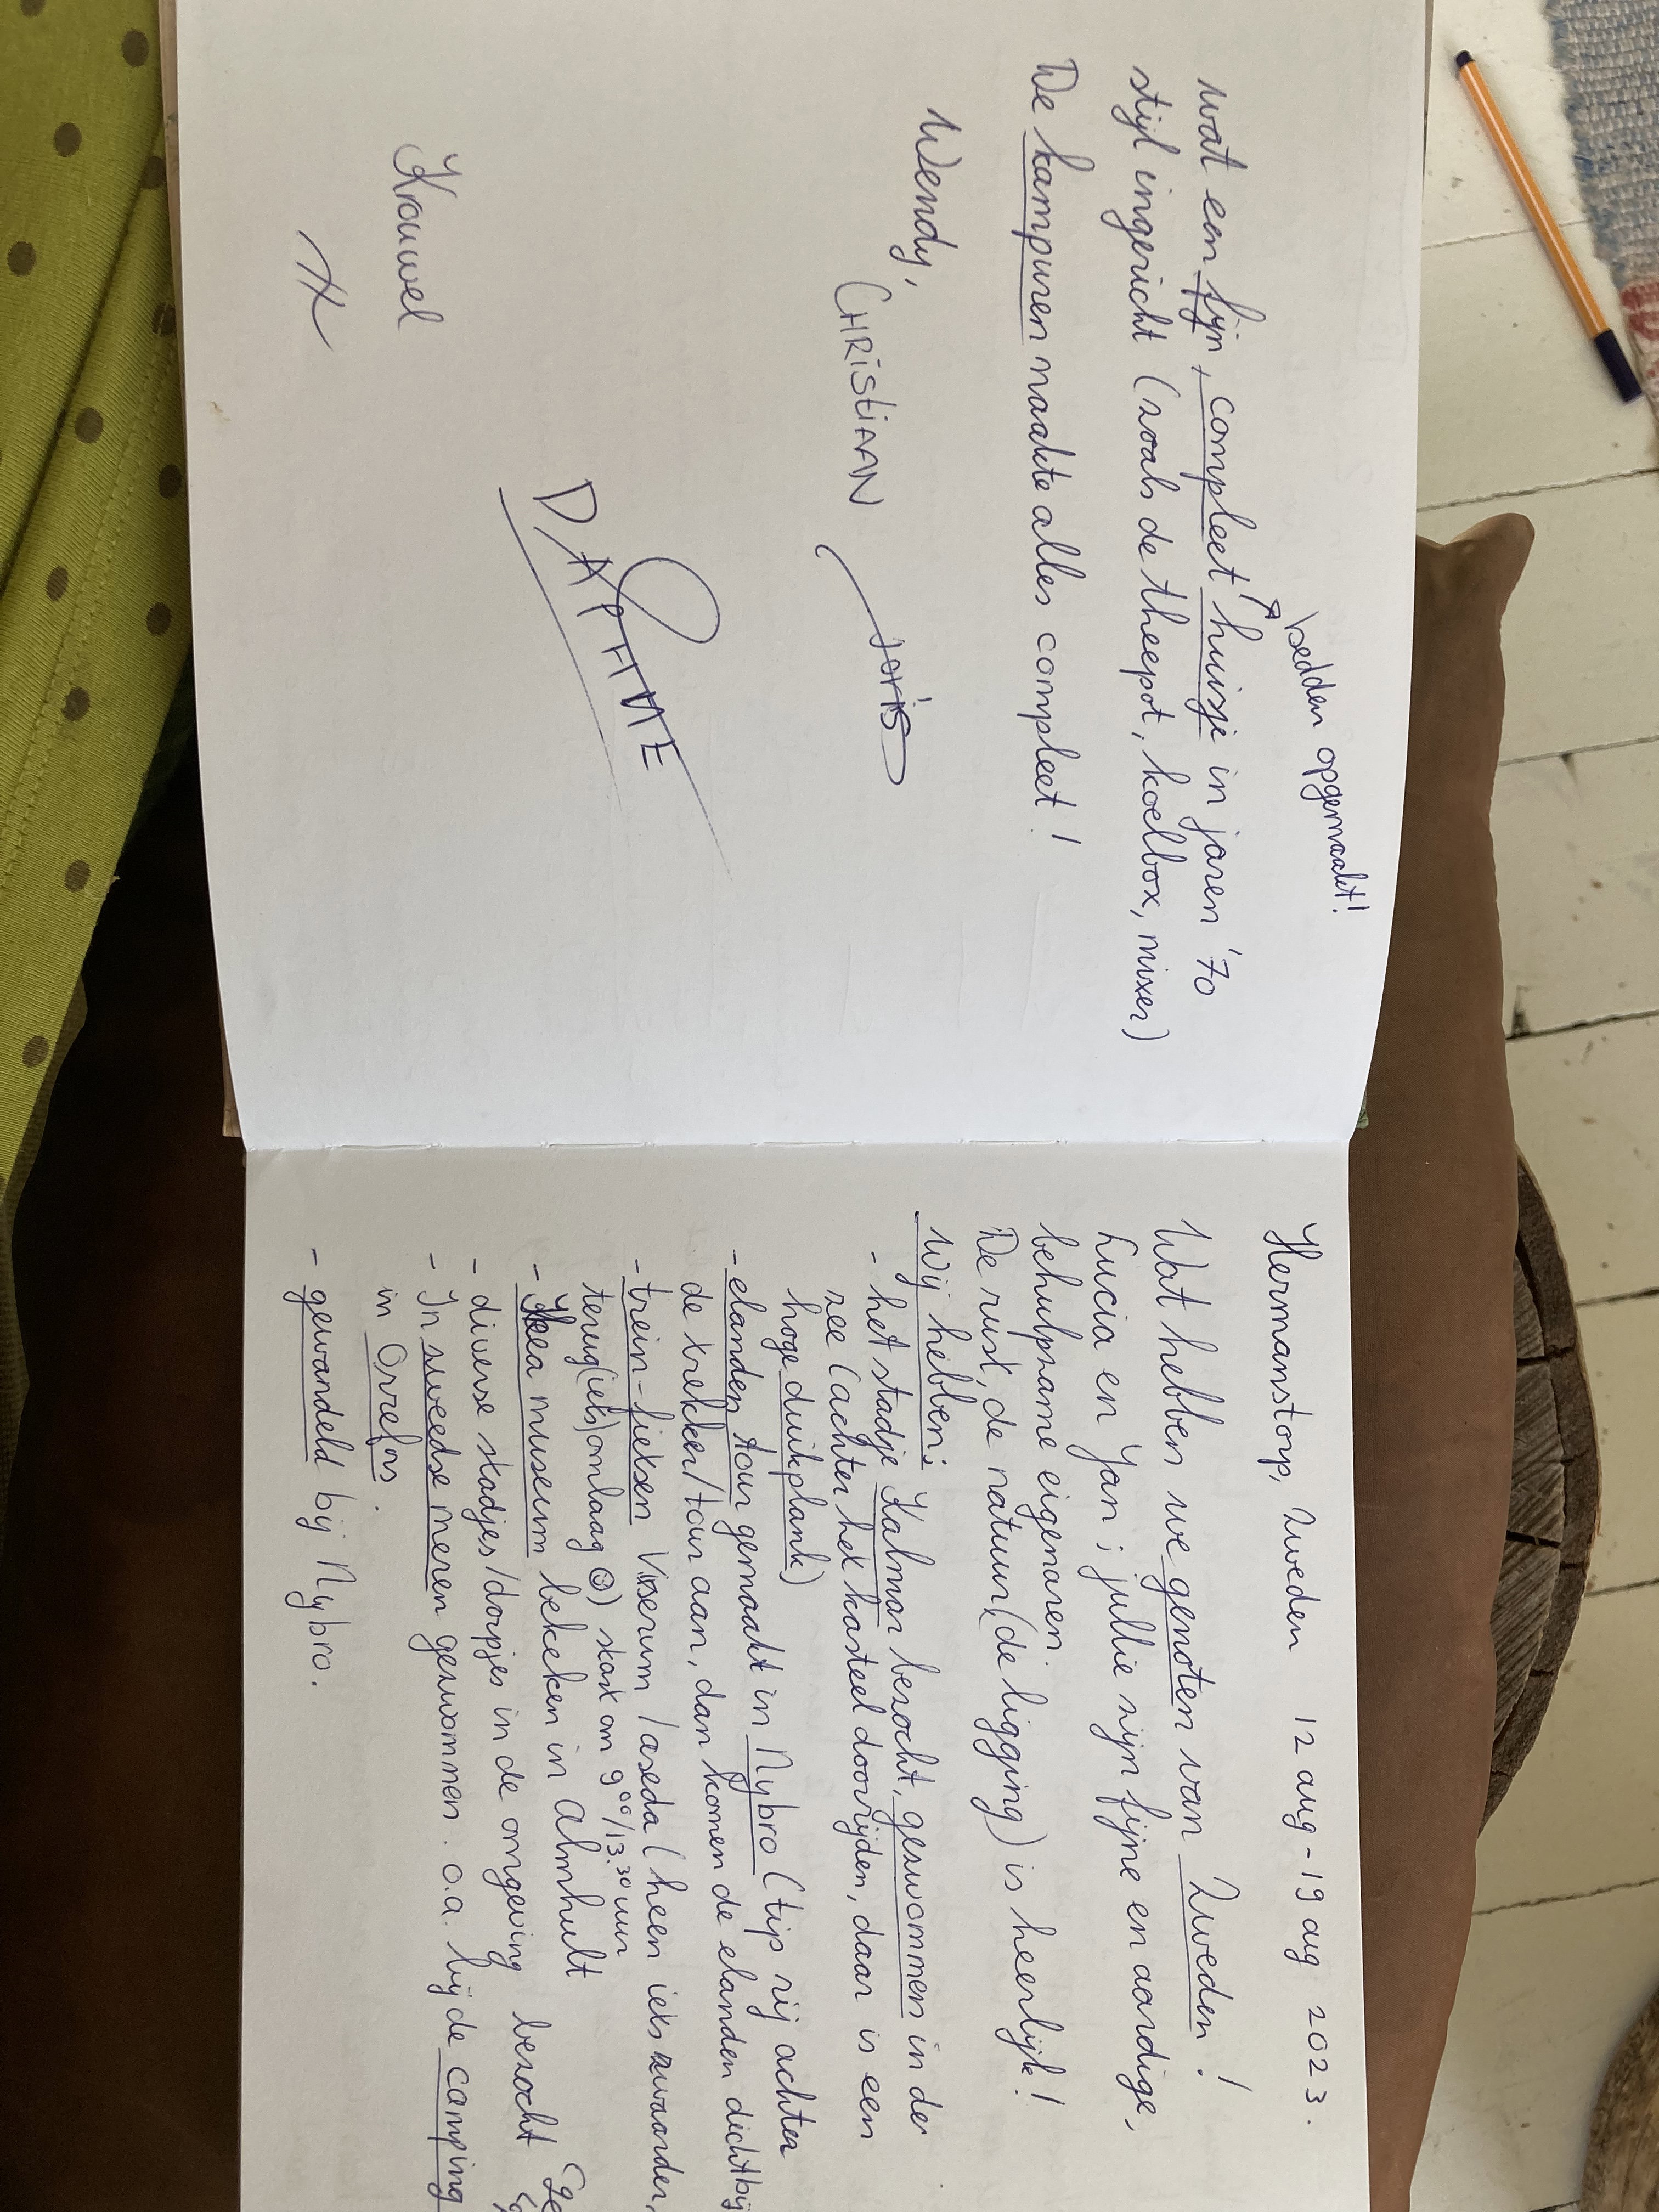 bedden opgemaakt!
wat een fijn, compleet huisje in jaren '70
stijl ingericht (zoals de theepot, koelbox, mixer)
De kampuren maakte alles compleet!
Wendy,
CHRISTIAAN
Joris
DAPHNE
Krouwel
X
Hermanstorp, Zweden 12 aug - 19 aug 2023.
Wat hebben we genoten van Zweden!
Lucia en Jan; jullie zijn fijne en aardige,
behulpzame eigenaren.
De rust, de natuur, (de ligging) is heerlijk!
Wij hebben:
- het stadje Kalmar bezocht, gezwommen in de
zee (achter het kasteel doorrijden, daar is een
hoge duikplank)
- elanden tour gemaakt in Nybro (tip rij achter
de trekker/tour aan, dan komen de elanden dichtbij
- trein-fietsen Virserum/aseda (heen iets zwaarder,
terug (iets) omlaag ☺) start om 9⁰⁰/13.³⁰ uur
- Ikea museum bekeken in Almhult
- diverse stadjes/dorpjes in de omgeving bezocht
- In zweedse meren gezwommen. o.a. bij de camping
in Orrefors.
- gewandeld bij Nybro.